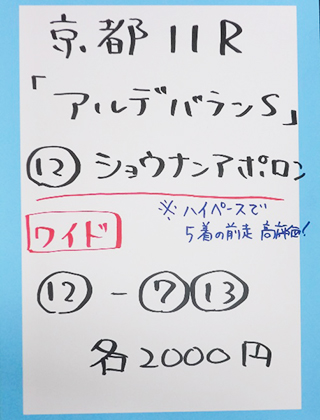 京都11R
「アルデバランS」
⑫ショウナンアポロン
※ハイペースで
5着の前走 高評価!
ワイド
⑫-⑦⑬
各2000円